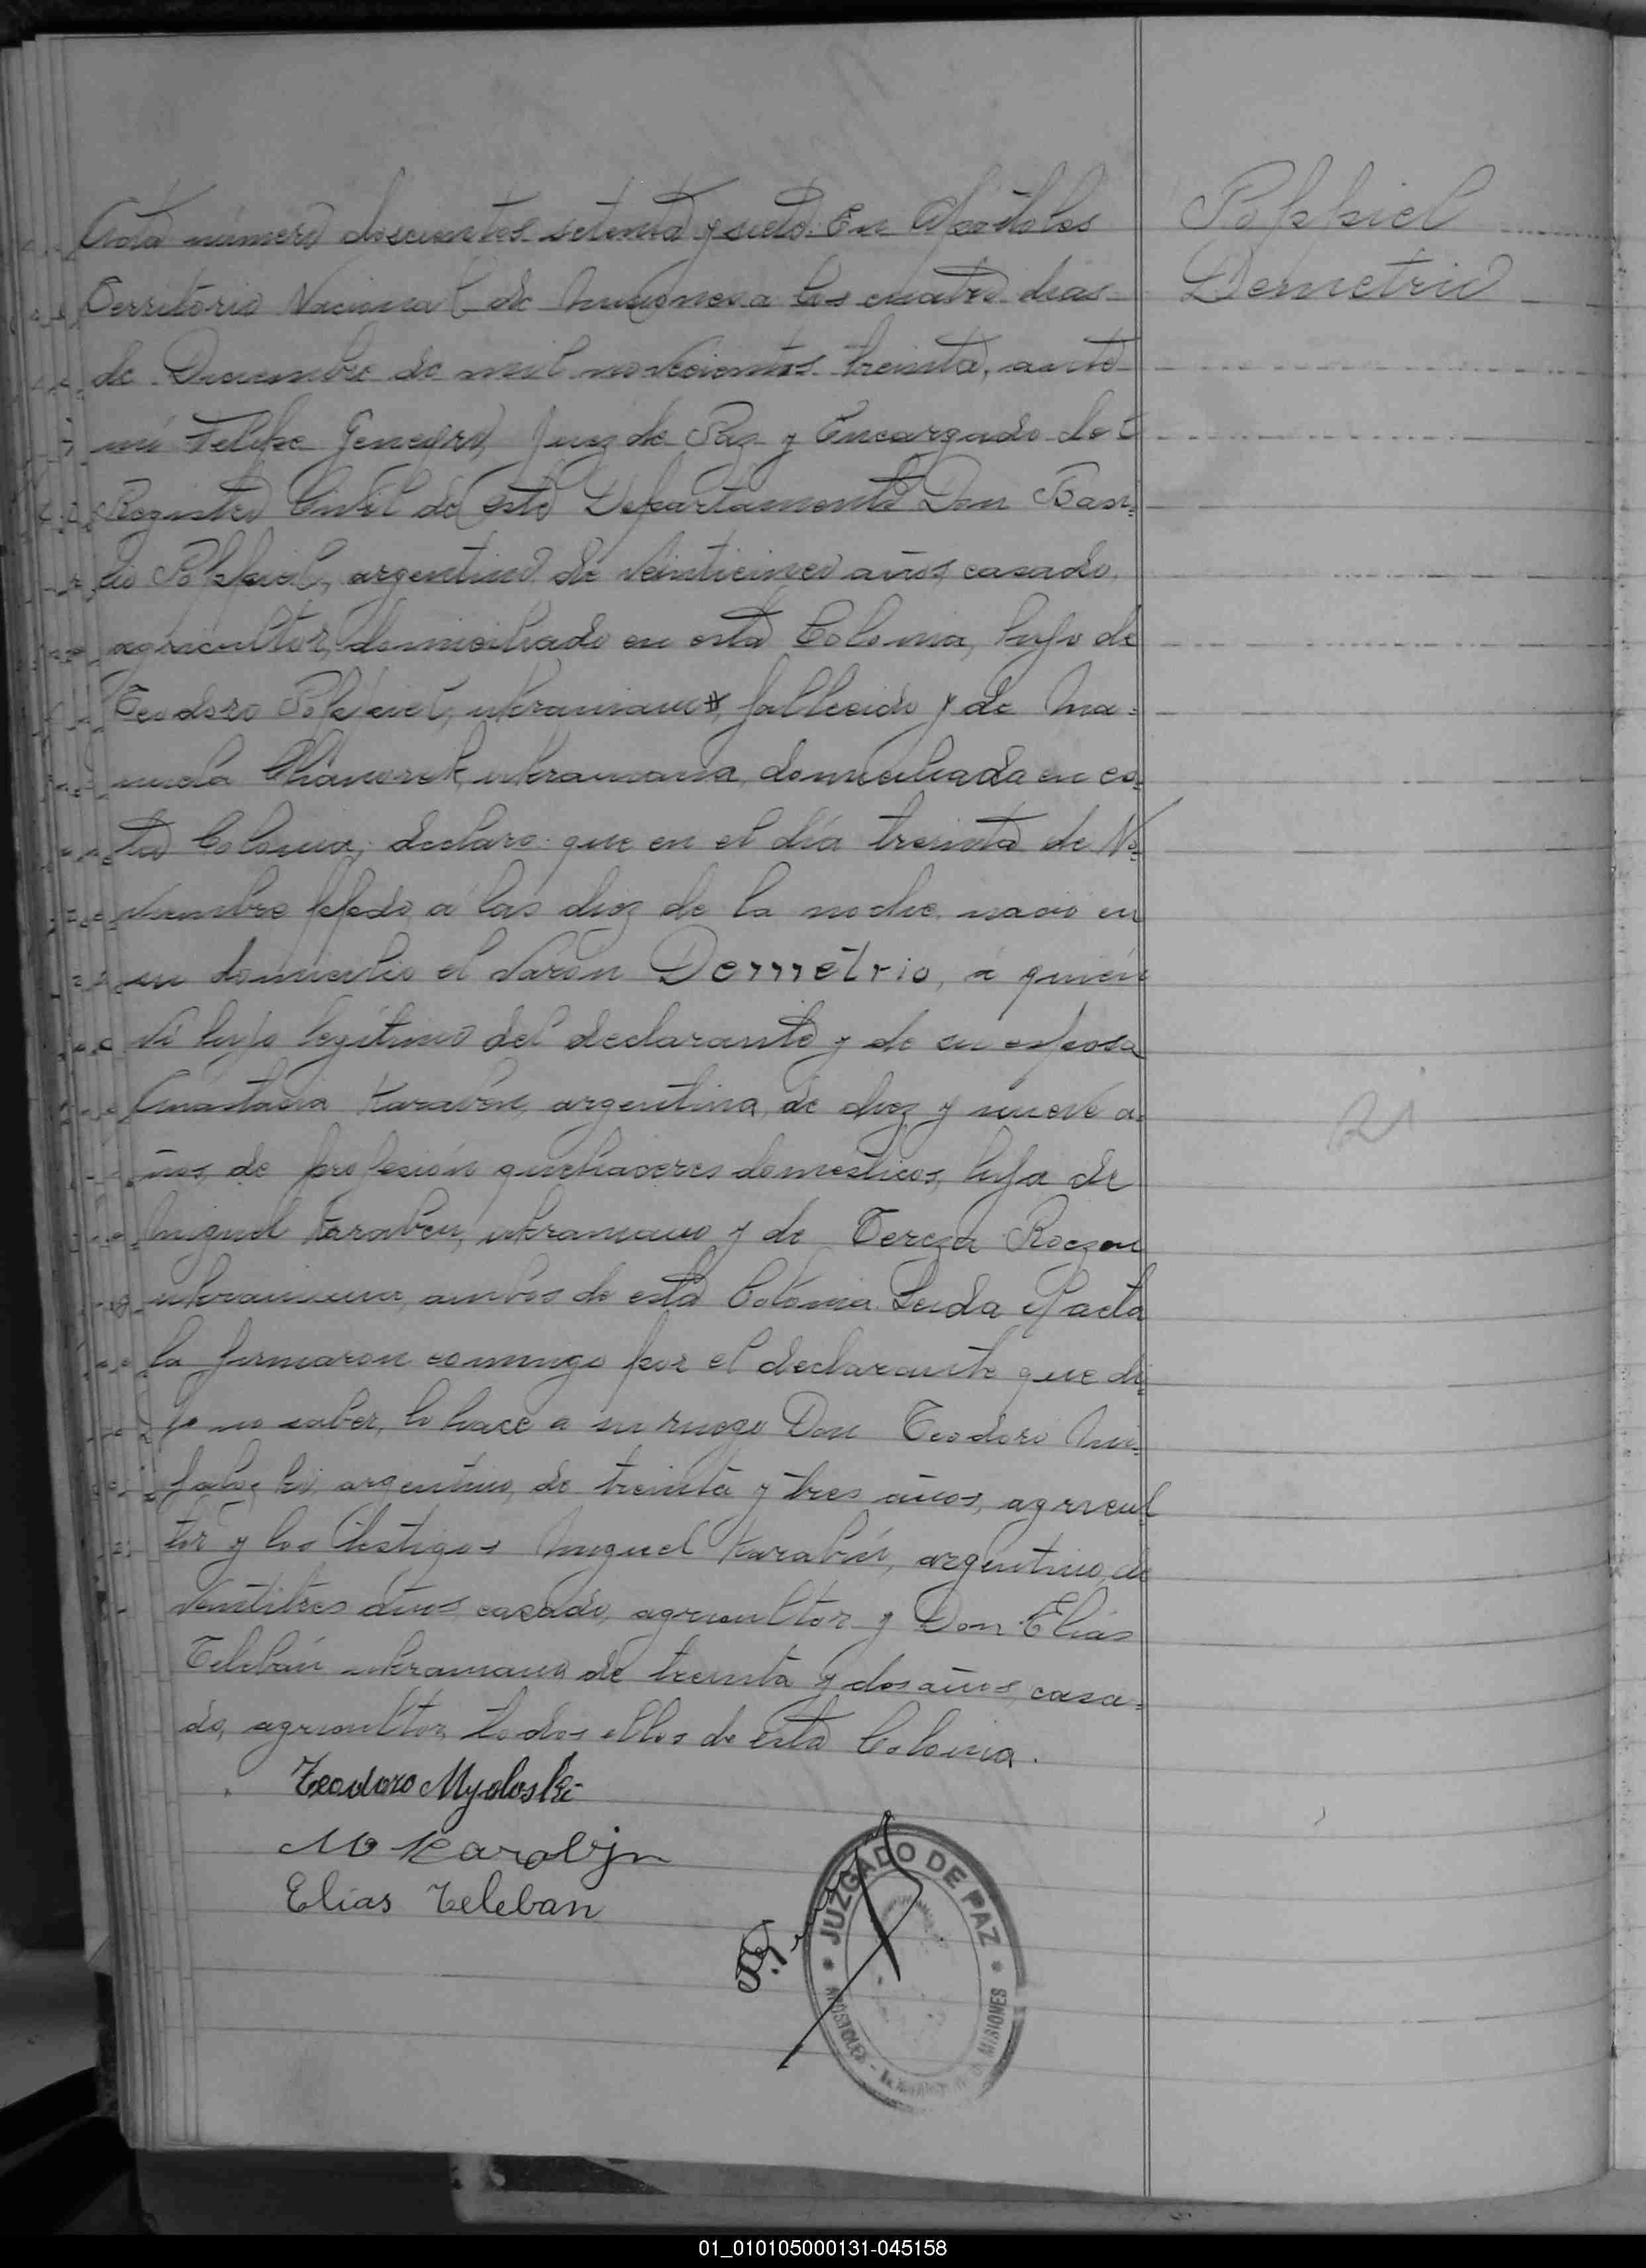 Acta número doscientos setenta y siete. En Apóstoles
Territorio Nacional de Misiones a los cuatro dias
de Diciembre de mil novecientos treinta, ante
mi Felipe Juez de Paz y Encargado del
Registro Civil de este Departamento Don Basi=
lio argentino de veinticinco años, casado,
agricultor, domiciliado en esta Colonia, hijo de
Teodoro ukraniano, fallecido y de Ma=
nuela ukraniana, domiciliada en es=
ta Colonia, declaro: que en el día treinta de No=
viembre ppdo, a las diez de la noche, nacio en
su domicilio el varón Demétrio, a quién
ví hijo legítimo del declarante y de su esposa
Anastacia Karabén, argentina, de diez y nueve a=
ños, de profesión quehaceres domesticos, hija de
Miguel Karaben, ukraniano y de Tereza Roczen
ukraniana, ambos de esta Colonia. Leida el acta
la firmaron conmigo por el declarante que di=
jo no saber, lo hace a su ruego Don Teodoro
argentino, de treinta y tres años, agricul
tor y los testigos Miguel Karabín, argentino, de
veintitres años, casado, agricultor y Don Elías
Telebán ukraniano, de treinta y dos años, casa=
do, agricultor, todos ellos de esta Colonia.
Teodoro Mydloski
M Karabin
Elías Teleban
Popkiel
Demetrio
21
JUZGADO DE PAZ
APOSTOLES - MISIONES
01_010105000131-045158